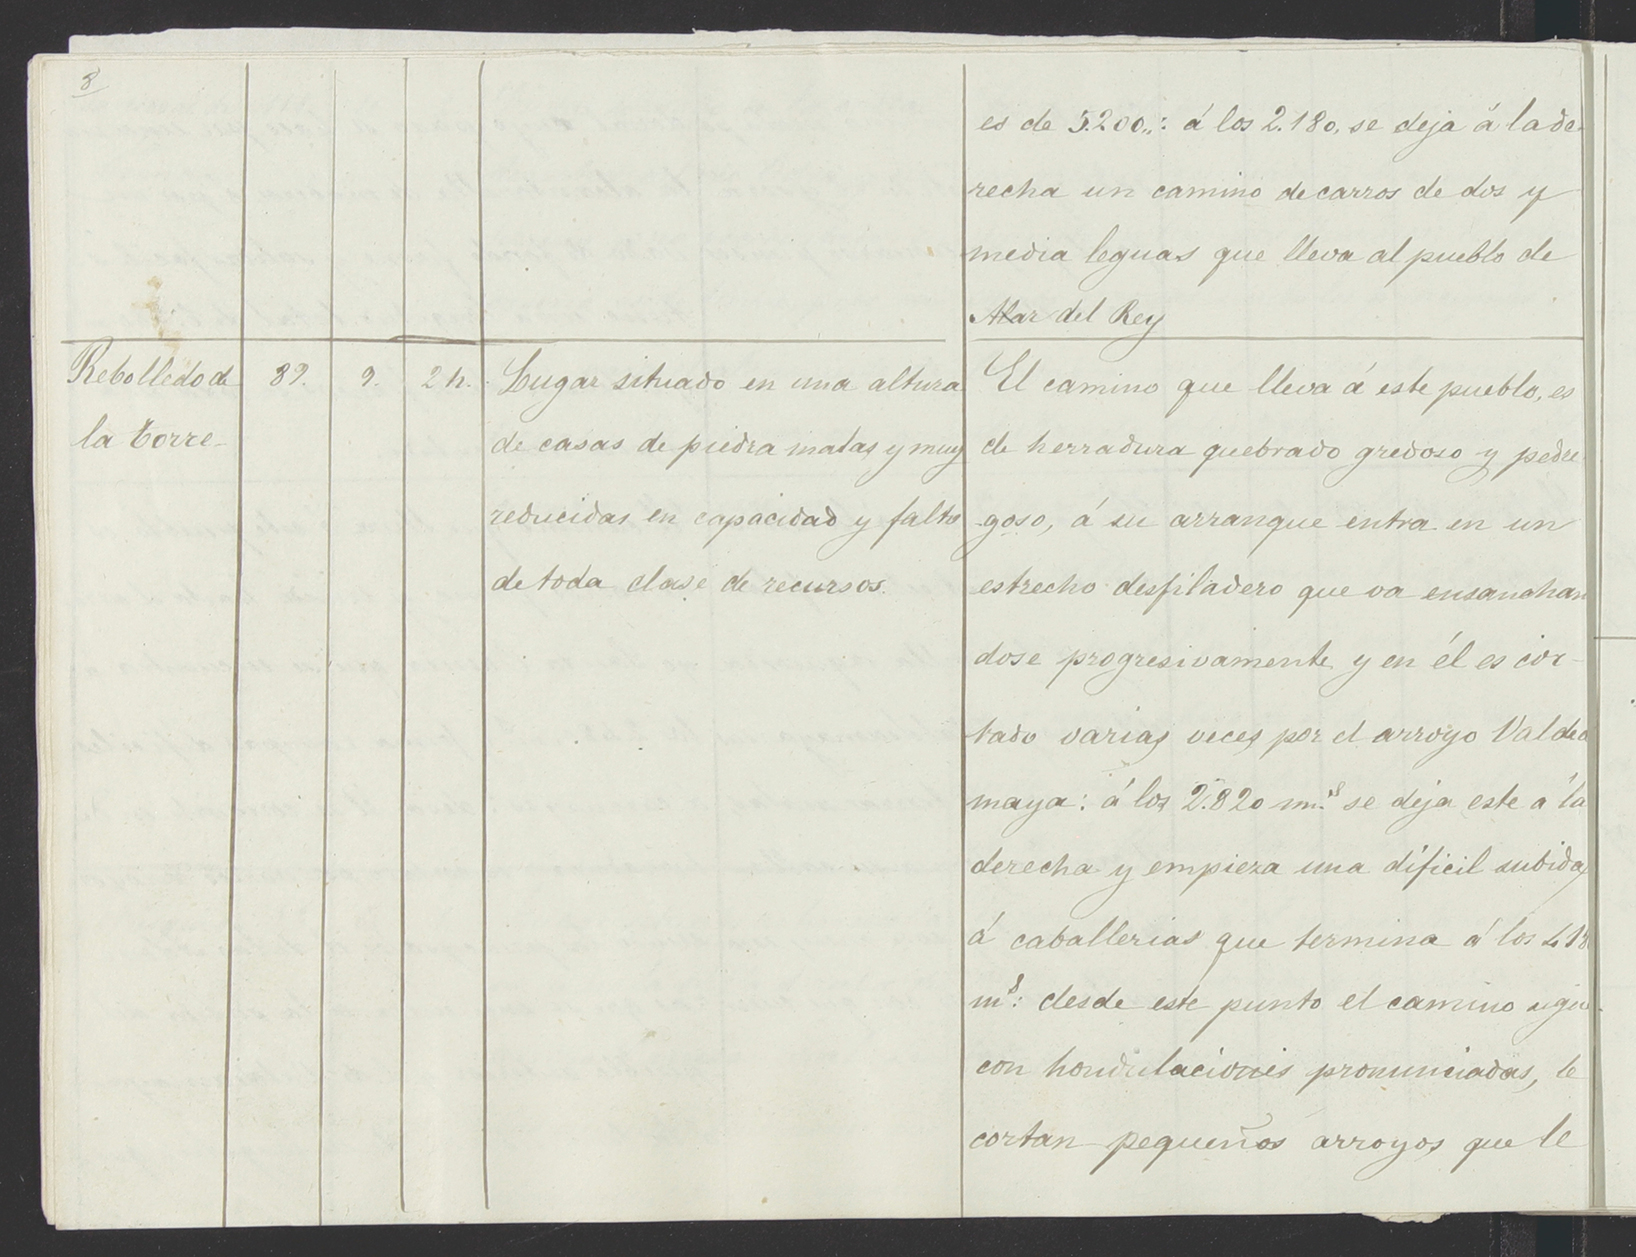 8
es de 5.200„: á los 2.180, se deja á la de-
recha un camino de carros de dos y
media leguas que lleva al pueblo de
Alar del Rey
Rebolledo de
la Torre
89.
9.
2 h.
Lugar situado en una altura
de casas de piedra malas y muy
reducidas en capacidad y falto
de toda clase de recursos.
El camino que lleva á este pueblo, es
de herradura quebrado gredoso y pedre
goso, á su arranque entra en un
estrecho desfiladero que va ensanchan
dose progresivamente y en él es cor-
tado varias veces por el arroyo Valdea
maya: á los 2.820 m.s se deja este á la
derecha y empieza una dificil subida
á caballerias que termina á los 418
ms: desde este punto el camino sigue
con hondulaciones pronunciadas, le
cortan pequeños arroyos que le